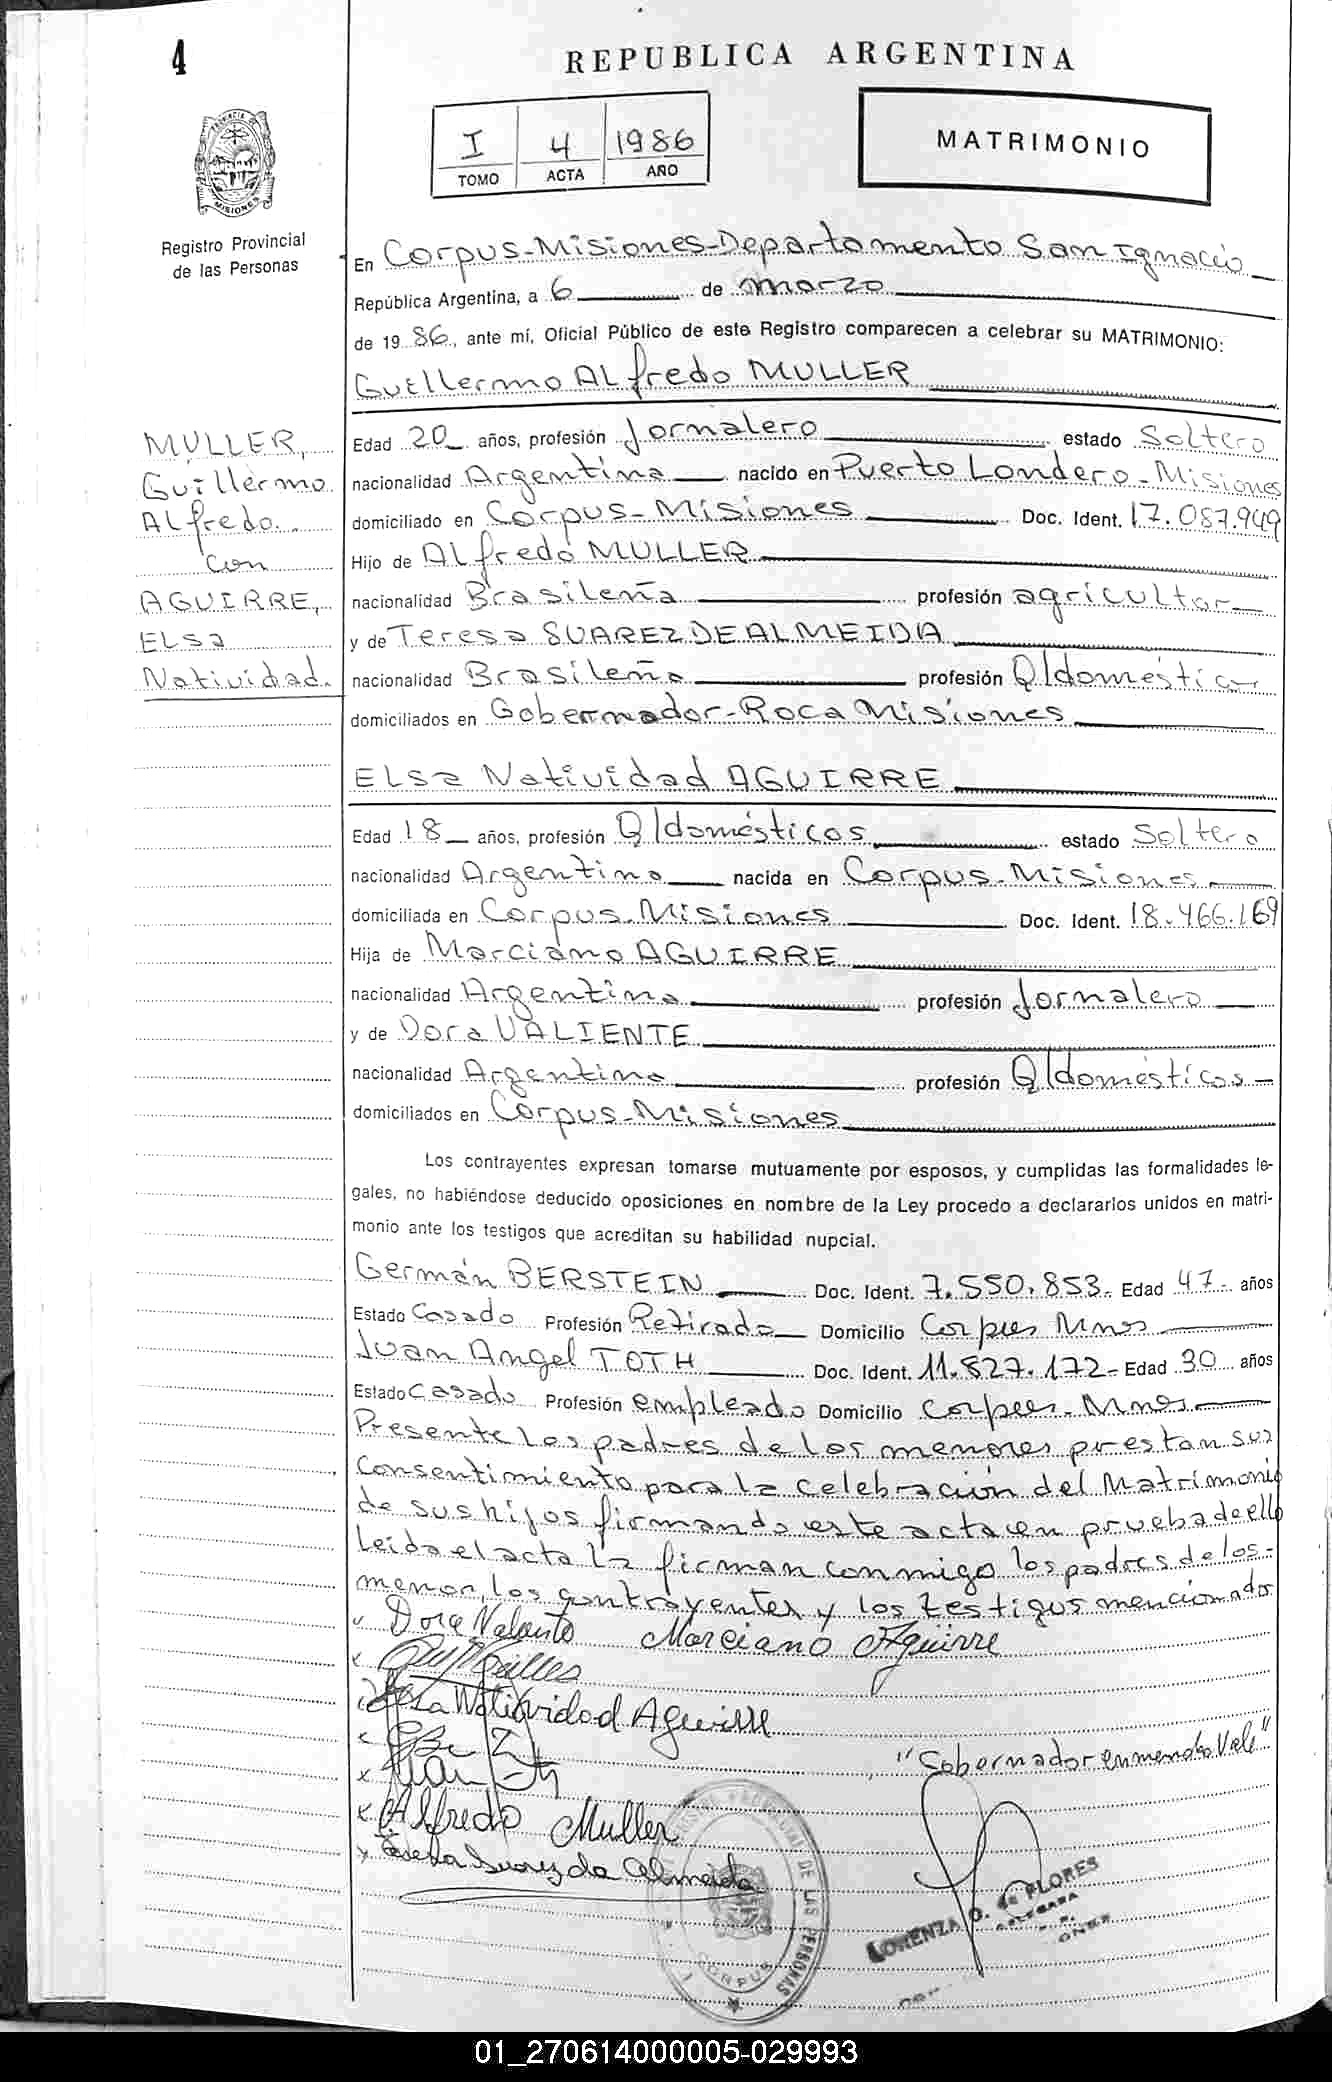 4
REPUBLICA ARGENTINA
I 4 1986
TOMO ACTA AÑO
MATRIMONIO
PROVINCIA DE MISIONES
Registro Provincial
de las Personas
En Corpus-Misiones-Departamento San Ignacio
República Argentina, a 6 de marzo
de 19 86, ante mí, Oficial Público de este Registro comparecen a celebrar su MATRIMONIO:
Guillermo ALfredo MULLER
MULLER,
Guillermo
ALfredo
con
AGUIRRE,
ELsa
Natividad.
Edad 20 años, profesión Jornalero estado Soltero
nacionalidad Argentina nacido en Puerto Londero-Misiones
domiciliado en Corpus-Misiones Doc. Ident. 17.087.949
Hijo de ALfredo MULLER
nacionalidad Brasileña profesión agricultor
y de Teresa SUAREZ DE ALMEIDA
nacionalidad Brasileña profesión Q/domésticos
domiciliados en Gobernador-Roca Misiones
ELsa Natividad AGUIRRE
Edad 18 años, profesión Q/domésticos estado Soltera
nacionalidad Argentina nacida en Corpus-Misiones
domiciliada en Corpus-Misiones Doc. Ident. 18.466.169
Hija de Marciano AGUIRRE
nacionalidad Argentina profesión Jornalero
y de Dora VALIENTE
nacionalidad Argentina profesión Q/domésticos
domiciliados en Corpus-Misiones
Los contrayentes expresan tomarse mutuamente por esposos, y cumplidas las formalidades le-
gales, no habiéndose deducido oposiciones en nombre de la Ley procedo a declararlos unidos en matri-
monio ante los testigos que acreditan su habilidad nupcial.
Germán BERSTEIN Doc. Ident. 7.550.853. Edad 47 años
Estado Casado Profesión Retirado Domicilio Corpus Mnes
Juan Angel TOTH Doc. Ident. 11.827.172- Edad 30 años
Estado Casado Profesión empleado Domicilio Corpus-Mnes
Presente los padres de los menores prestan sus
Consentimiento para la celebración del Matrimonio
de sus hijos firmando este acta en prueba de ello
leida el acta la firman conmigo los padres de los-
menor, los contrayentes y los testigos mencionados
Dora Valiente Marciano Aguirre
Elsa Natividad Aguirre
"Gobernador enmendado Vale"
Alfredo Muller
Teresa Suarez da Almeida
CORPUS
DE LAS PERSONAS
LORENZA O. de FLORES
01_270614000005-029993